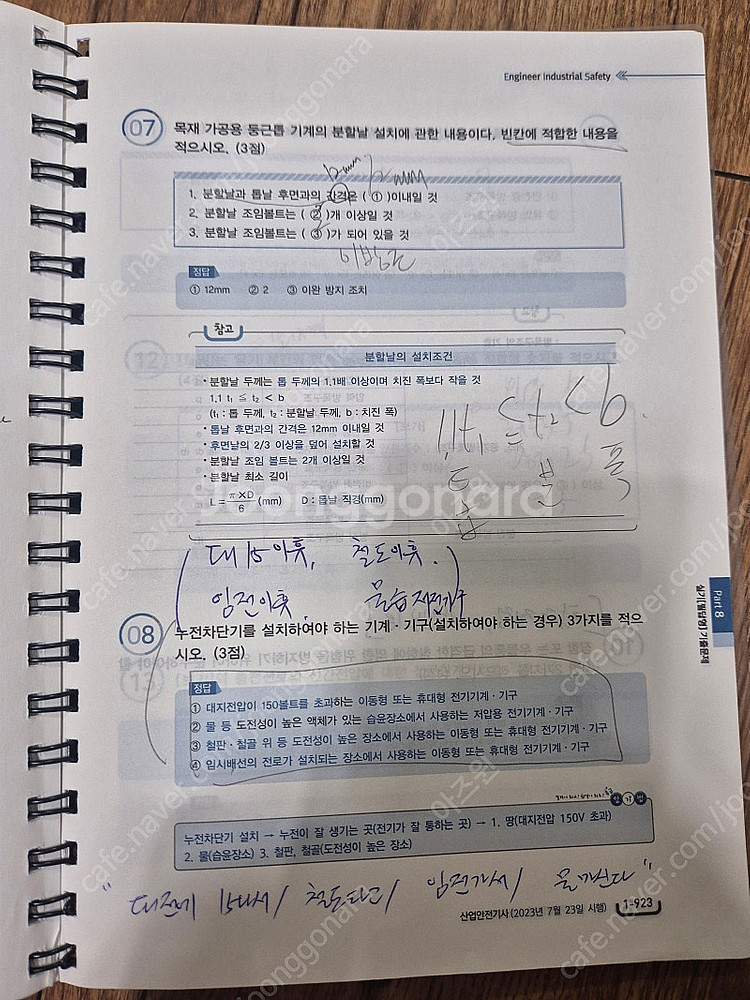 Engineer Industrial Safety
07 목재 가공용 둥근톱 기계의 분할날 설치에 관한 내용이다. 빈칸에 적합한 내용을
적으시오. (3점)
12mm
1. 분할날과 톱날 후면과의 간격은 ( ① )이내일 것
2. 분할날 조임볼트는 ( ② )개 이상일 것
3. 분할날 조임볼트는 ( ③ )가 되어 있을 것
정답
① 12mm ② 2 ③ 이완 방지 조치
참고
분할날의 설치조건
• 분할날 두께는 톱 두께의 1.1배 이상이며 치진 폭보다 작을 것
1.1 t₁ ≤ t₂ < b
(t₁ : 톱 두께, t₂ : 분할날 두께, b : 치진 폭)
• 톱날 후면과의 간격은 12mm 이내일 것
• 후면날의 2/3 이상을 덮어 설치할 것
• 분할날 조임 볼트는 2개 이상일 것
• 분할날 최소 길이
L = π×D/6 (mm) D : 톱날 직경(mm)
1.1t₁ ≤ t₂ < b
톱 분 폭
대15이휴, 철도이휴.
임전이휴 물습저전기구
08 누전차단기를 설치하여야 하는 기계·기구(설치하여야 하는 경우) 3가지를 적으
시오. (3점)
정답
① 대지전압이 150볼트를 초과하는 이동형 또는 휴대형 전기기계·기구
② 물 등 도전성이 높은 액체가 있는 습윤장소에서 사용하는 저압용 전기기계·기구
③ 철판·철골 위 등 도전성이 높은 장소에서 사용하는 이동형 또는 휴대형 전기기계·기구
④ 임시배선의 전로가 설치되는 장소에서 사용하는 이동형 또는 휴대형 전기기계·기구
암기법
누전차단기 설치 → 누전이 잘 생기는 곳(전기가 잘 통하는 곳) → 1. 땅(대지전압 150V 초과)
2. 물(습윤장소) 3. 철판, 철골(도전성이 높은 장소)
산업안전기사(2023년 7월 23일 시행) 1-923
Part 8
실기[필답형] 기출문제
joonggonara
cafe.naver.com/joonggonara